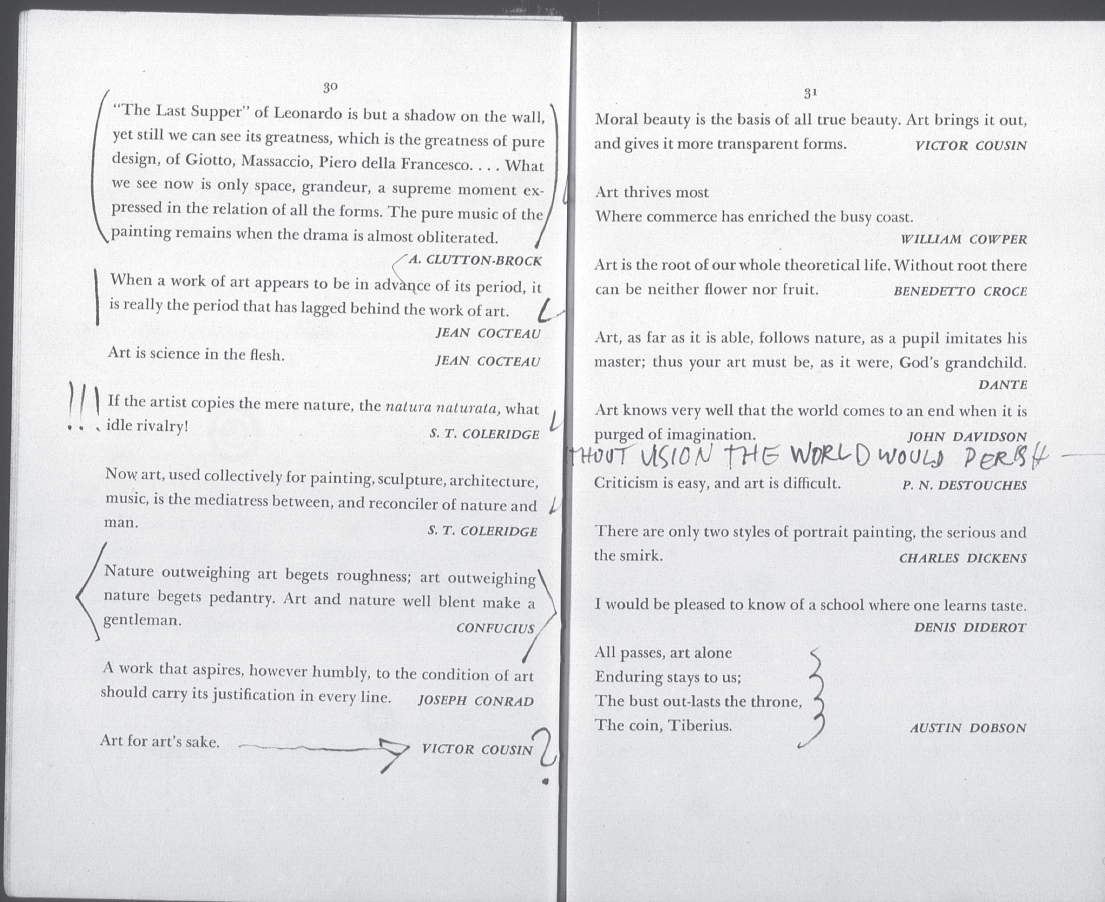 30
“The Last Supper” of Leonardo is but a shadow on the wall,
yet still we can see its greatness, which is the greatness of pure
design, of Giotto, Massaccio, Piero della Francesco. . . . What
we see now is only space, grandeur, a supreme moment ex-
pressed in the relation of all the forms. The pure music of the
painting remains when the drama is almost obliterated.
A. CLUTTON-BROCK
When a work of art appears to be in advance of its period, it
is really the period that has lagged behind the work of art.
JEAN COCTEAU
Art is science in the flesh. JEAN COCTEAU
!!! If the artist copies the mere nature, the natura naturata, what
idle rivalry! S. T. COLERIDGE
Now art, used collectively for painting, sculpture, architecture,
music, is the mediatress between, and reconciler of nature and
man. S. T. COLERIDGE
Nature outweighing art begets roughness; art outweighing
nature begets pedantry. Art and nature well blent make a
gentleman. CONFUCIUS
A work that aspires, however humbly, to the condition of art
should carry its justification in every line. JOSEPH CONRAD
Art for art’s sake. VICTOR COUSIN ?
31
Moral beauty is the basis of all true beauty. Art brings it out,
and gives it more transparent forms. VICTOR COUSIN
Art thrives most
Where commerce has enriched the busy coast.
WILLIAM COWPER
Art is the root of our whole theoretical life. Without root there
can be neither flower nor fruit. BENEDETTO CROCE
Art, as far as it is able, follows nature, as a pupil imitates his
master; thus your art must be, as it were, God’s grandchild.
DANTE
Art knows very well that the world comes to an end when it is
purged of imagination. JOHN DAVIDSON
THOUT VISION THE WORLD WOULD PERISH
Criticism is easy, and art is difficult. P. N. DESTOUCHES
There are only two styles of portrait painting, the serious and
the smirk. CHARLES DICKENS
I would be pleased to know of a school where one learns taste.
DENIS DIDEROT
All passes, art alone
Enduring stays to us;
The bust out-lasts the throne,
The coin, Tiberius. AUSTIN DOBSON